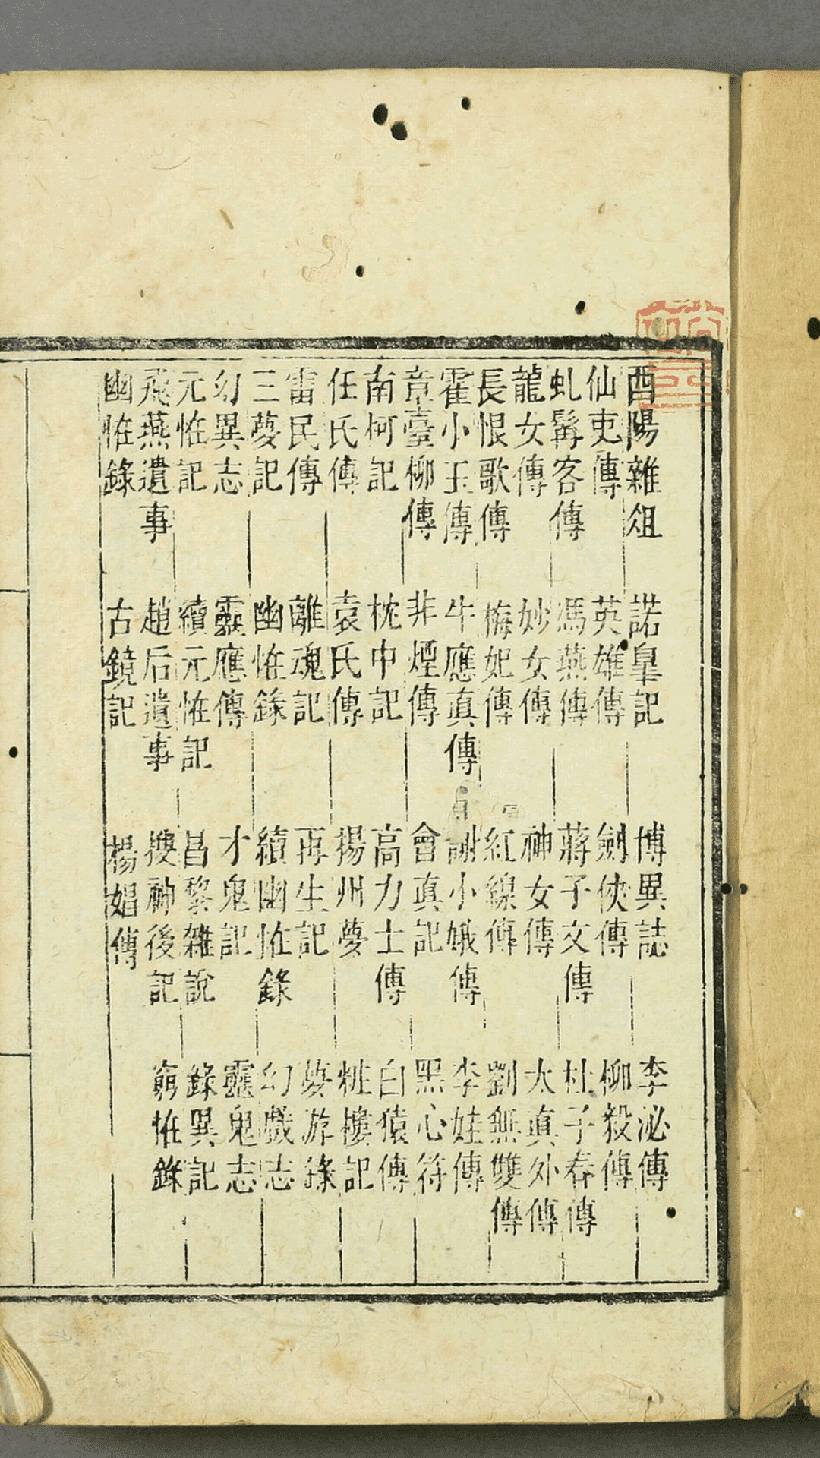 酉陽雜俎 諾皐記 博異誌 李泌傳
仙吏傳 英雄傳 劍俠傳 柳毅傳
虬髯客傳 馮燕傳 蔣子文傳 杜子春傳
龍女傳 妙女傳 神女傳 太真外傳
長恨歌傳 梅妃傳 紅線傳 劉無雙傳
霍小玉傳 牛應真傳 謝小娥傳 李娃傳
章臺柳傳 非煙傳 會真記 黑心符
南柯記 枕中記 高力士傳 白猿傳
任氏傳 袁氏傳 揚州夢 粧樓記
雷民傳 離魂記 再生記 夢游錄
三夢記 幽恠錄 續幽恠錄 幻戲志
幻異志 靈應傳 才鬼記 靈鬼志
元恠記 續元恠記 昌黎雜說 錄異記
飛燕遺事 趙后遺事 搜神後記 窮恠錄
幽恠錄 古鏡記 楊娼傳